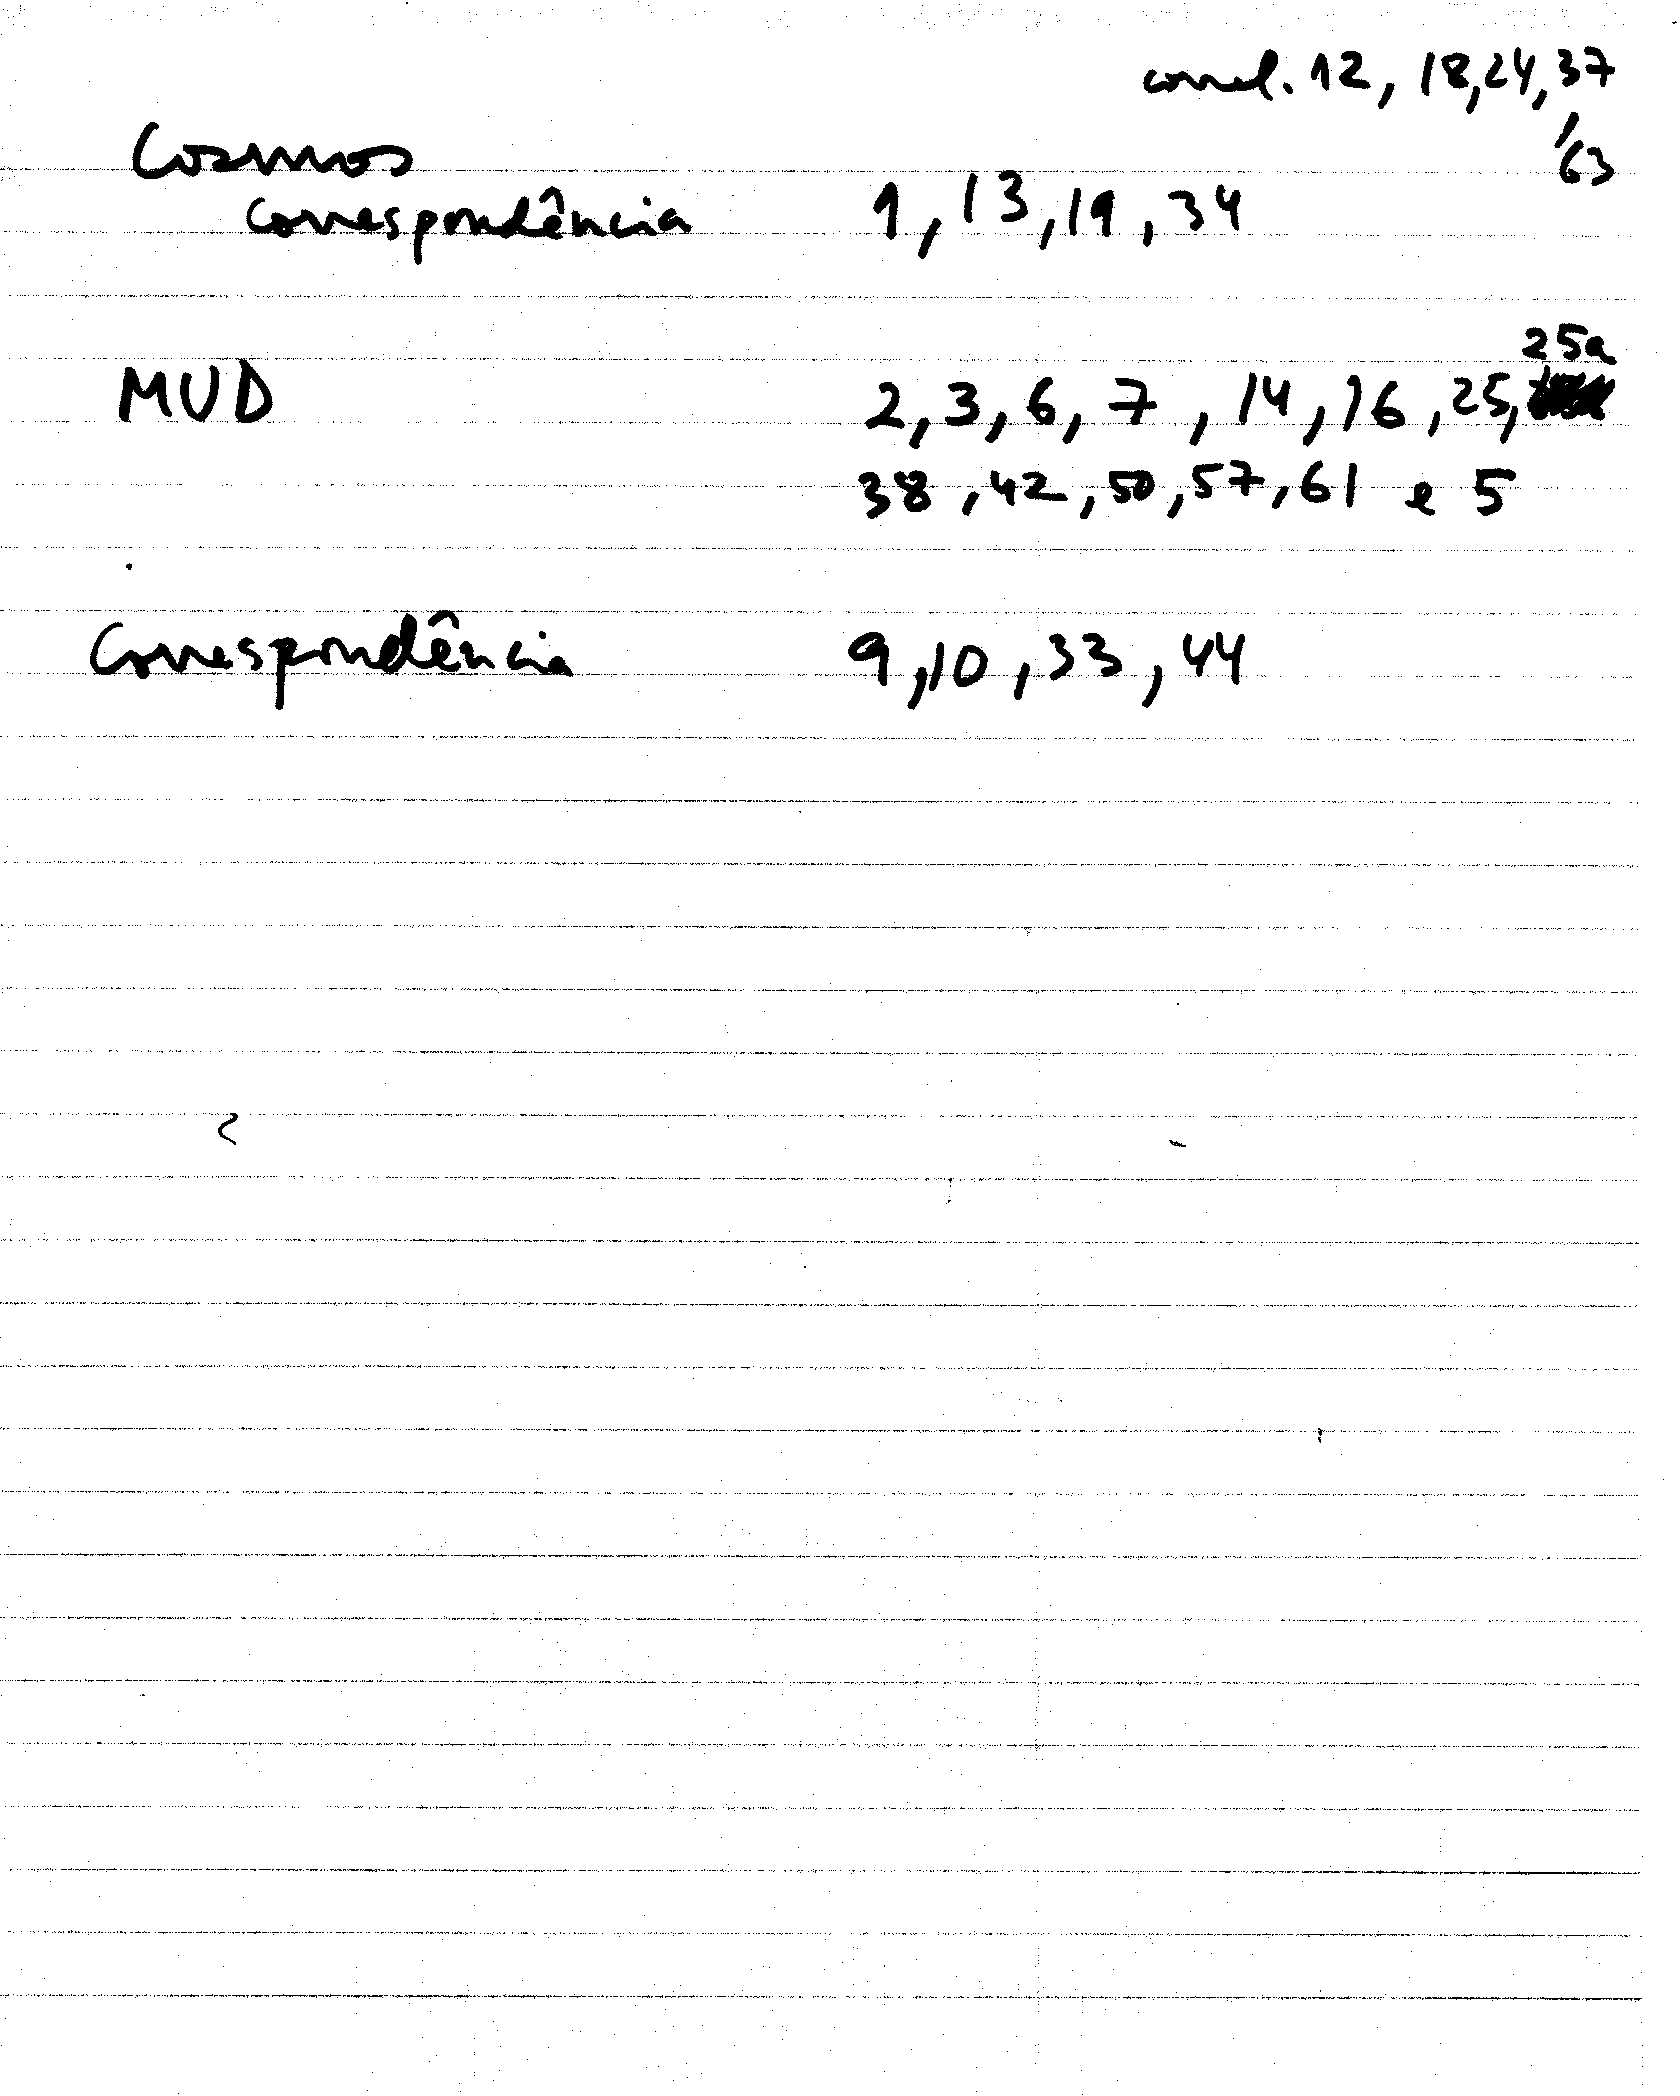 correl. 12, 18, 24, 37
/63
Cosmos
correspondência 1, 13, 19, 34
25a
MUD 2, 3, 6, 7, 14, 16, 25,
38, 42, 50, 57, 61 e 5
Correspondência 9, 10, 33, 44